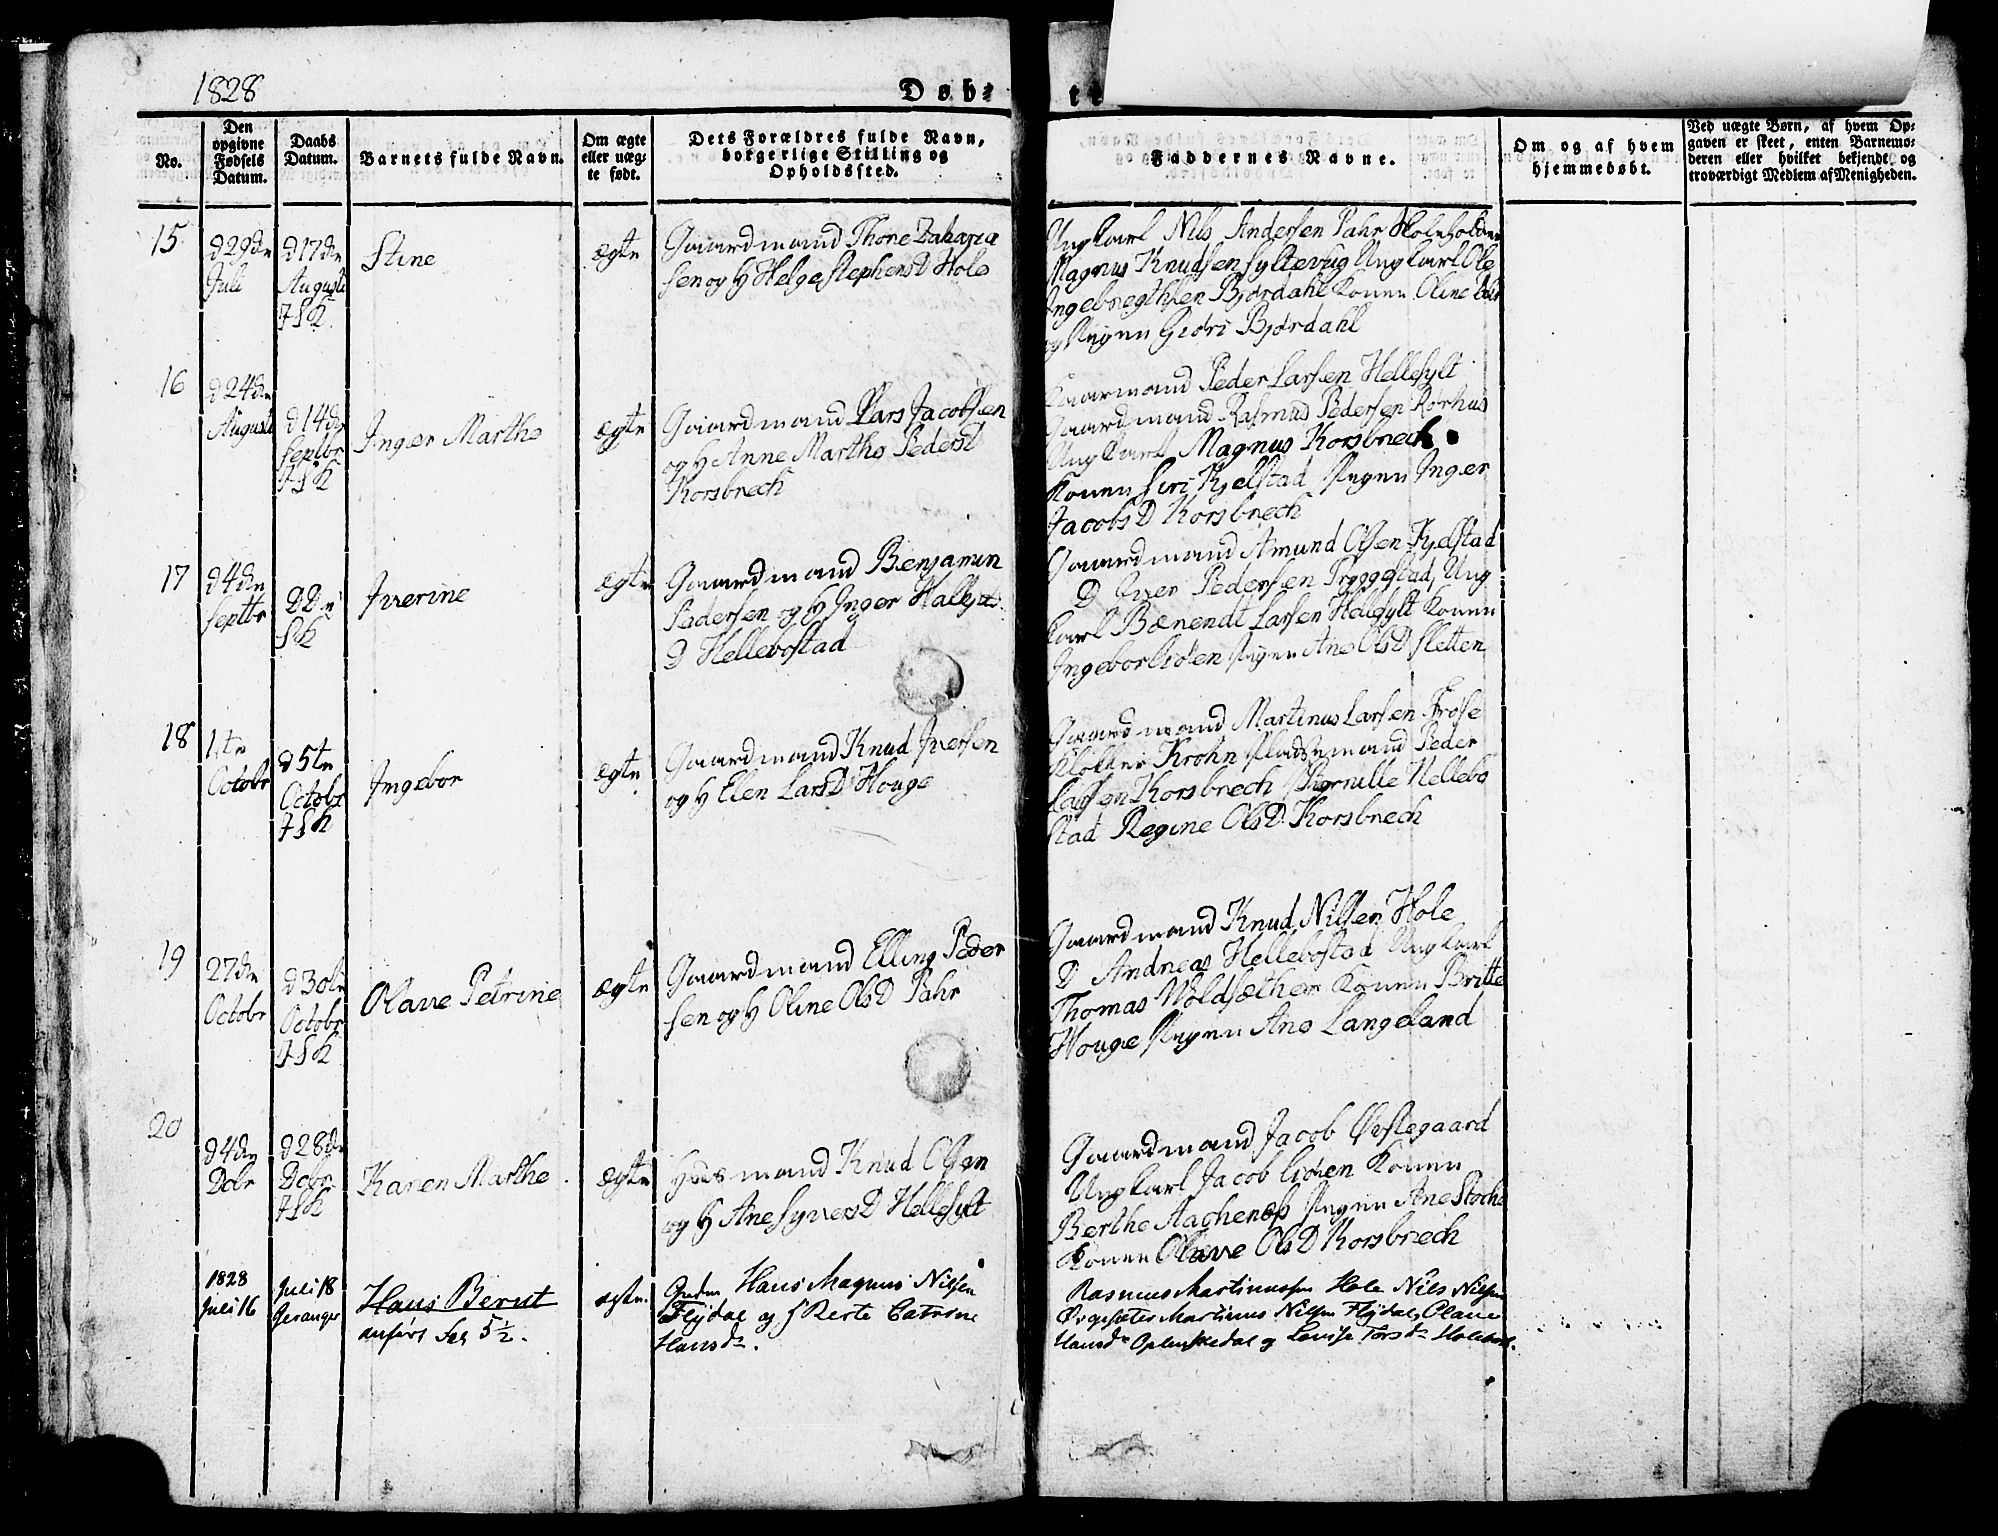 1828
Døb-
No.
Den
opgivne
Fødsels
Datum.
Daabs
Datum.
Barnets fulde Navn.
Om ægte
eller uæg-
te født.
Dets Forældres fulde Navn,
borgerlige Stilling og
Opholdssted.
Faddernes Navne.
Om og af hvem
hjemmedøbt.
Ved uægte Børn, af hvem Op-
gaven er skeet, enten Barnemo-
deren eller hvilket bekjendt og
troværdigt Medlem af Menigheden.
15
d 29de
Juli
d 17de
August
Stine
ægte
Gaardmand Thore Zakaria
sen og H Helge Stephens D Hole
Ungkarl Nils Andersen Pahr
Magnus Knudsen Syltevug Ungkarl Ole
Ingebregthsen Bjørdahl Konen Oline
og Pigen Giøri Bjørdahl
16
d 24de
August
d 14de
Septbr
Inger Marthe
ægte
Gaardmand Lars Jacobsen
og H Anne Marthe Peders D
Korsbrech
Gaarmand Peder Larsen Hellesylt
Gaardmand Rasmus Pedersen Rørhus
Ungkarl Magnus Korsbrech
Konen Siri Kjelstad Pigen Inger
Jacobs D Korsbrech
17
d 4de
Septbr
D De
Iverine
ægte
Gaardmand Benjamin
Pedersen og H Inger
D Hellebostad
Gaardmand Amund Olsen Kjelstad
D Iver Pedersen Tryggestad, Ung
karl Bærendt Larsen Hellesylt Konen
Ingebor Liden Pigen Ane Ols D Sletten
18
1te
Octobr
d 5te
Octobr
Ingebor
ægte
Gaardmand Knud Iversen
og H Elen Lars D Houge
Gaardmand Martinus Larsen Frøse
Klokker Krohn Pladsemand Peder
Larsen Korsbrech Pernille Hellebo
stad Regine Ols D Korsbrech
19
27de
Octobr
d 30te
Octobr
Olave Petrine
ægte
Gaardmand Elling Peder
sen og H Oline Ols D Pahr
Gaardmand Knud Nilsen Hole
D Andreas Hellebostad Ungkarl
Thomas Woldsæther Konen Britte
Houge Pigen Ane Langeland
20
d 4de
Dcbr
d 28de
Dcbr
Karen Marthe
ægte
Huusmand Knud Olsen
og H Ane Syvers D Hellesylt
Gaardmand Jacob Øvstegaard
Ungkarl Jacob Liden Konen
Berthe Aaghenæs Pigen Ane Stoche
Konen Olave Ols D Korsbrech
1828
Juli 16
Juli 18
Geranger
Hans Bernt
anført Sag 5½.
ægte.
Hans Magnus Nilsen
Flydal og H Berte Catrine
Hansdr.
Rasmus Martinussen Hole Nils Nilsen
Ørgesæter Martinus Nilsen Flydal, Olave
Hansdr Oplenskedal og Lovise Torsdr